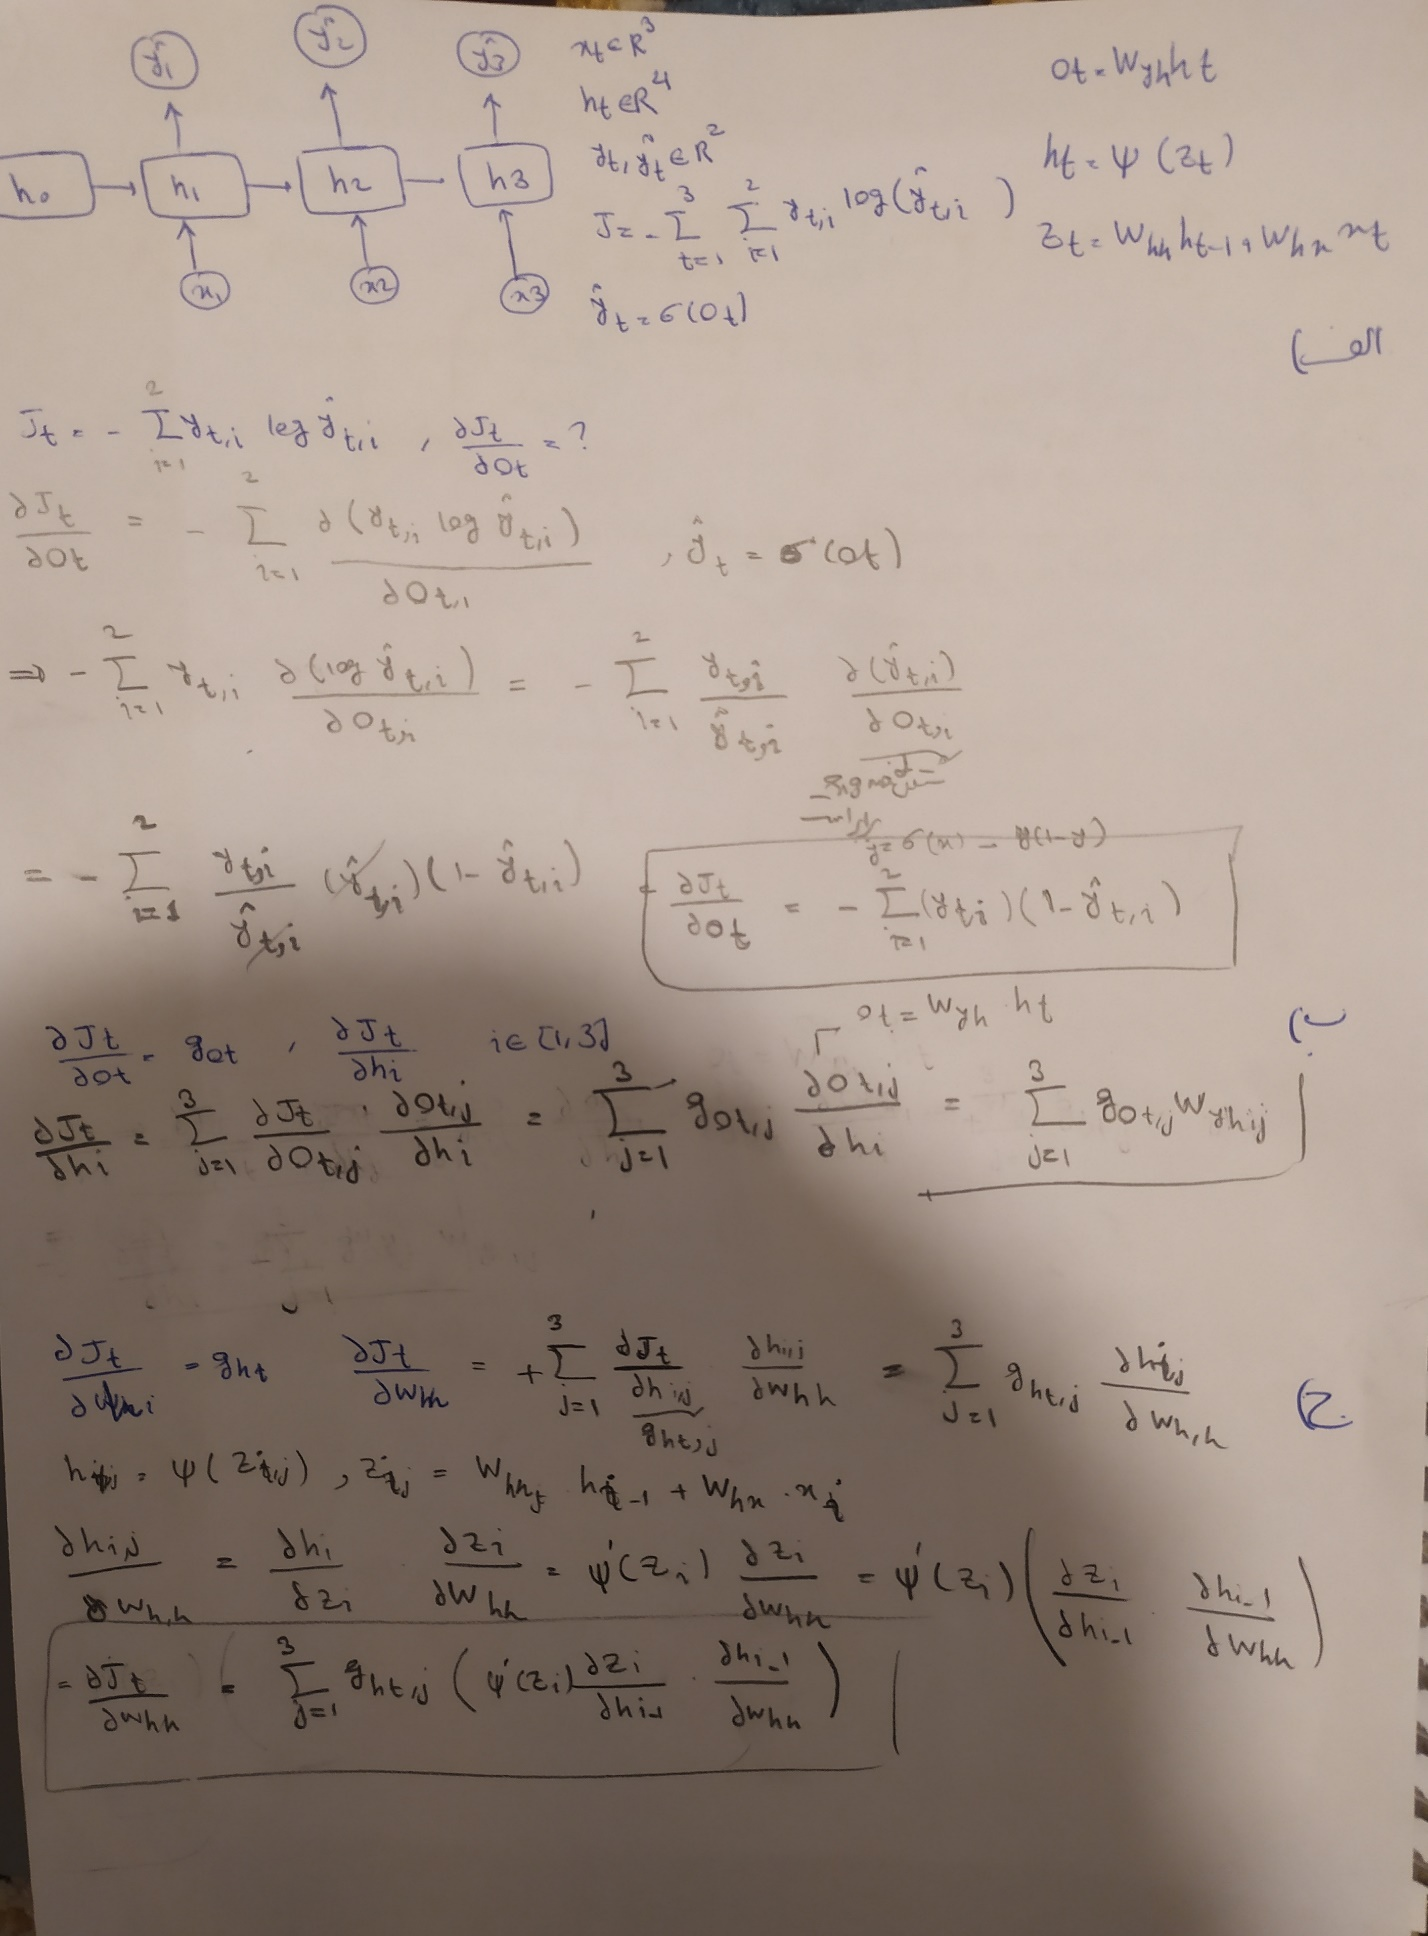 ŷ₁ ŷ₂ ŷ₃
h₀ h₁ h₂ h₃
x₁ x₂ x₃
x_t ∈ R³
h_t ∈ R⁴
y_t, ŷ_t ∈ R²
J = - Σ_{t=1}^{3} Σ_{i=1}^{2} y_{t,i} log(ŷ_{t,i})
ŷ_t = σ(o_t)
o_t = W_{yh} h_t
h_t = ψ(z_t)
z_t = W_{hh} h_{t-1} + W_{hx} x_t
الف)
J_t = - Σ_{i=1}^{2} y_{t,i} log ŷ_{t,i} , ∂J_t/∂o_t = ?
∂J_t/∂o_t = - Σ_{i=1}^{2} ∂(y_{t,i} log ŷ_{t,i})/∂o_{t,i} , ŷ_t = σ(o_t)
⇒ - Σ_{i=1}^{2} y_{t,i} ∂(log ŷ_{t,i})/∂o_{t,i} = - Σ_{i=1}^{2} y_{t,i}/ŷ_{t,i} ∂(ŷ_{t,i})/∂o_{t,i}
y = σ(x) → y(1-y)
= - Σ_{i=1}^{2} y_{t,i}/ŷ_{t,i} (ŷ_{t,i})(1 - ŷ_{t,i})
∂J_t/∂o_t = - Σ_{i=1}^{2} (y_{t,i})(1 - ŷ_{t,i})
ب)
∂J_t/∂o_t = g_{o_t} , ∂J_t/∂h_i i ∈ [1,3]
o_t = W_{yh} · h_t
∂J_t/∂h_i = Σ_{j=1}^{3} ∂J_t/∂o_{t,j} · ∂o_{t,j}/∂h_i = Σ_{j=1}^{3} g_{o_t,j} ∂o_{t,j}/∂h_i = Σ_{j=1}^{3} g_{o_t,j} W_{yh ij}
ج)
∂J_t/∂h_i = g_{h_t} ∂J_t/∂W_{hh} = + Σ_{j=1}^{3} ∂J_t/∂h_{i,j} ∂h_{i,j}/∂W_{hh} = Σ_{j=1}^{3} g_{h_t,j} ∂h_{i,j}/∂W_{h,h}
g_{h_t,j}
h_{i,j} = ψ(z_{i,j}) , z_{i,j} = W_{hh_j} h_{i-1} + W_{hx} · x_i
∂h_{i,j}/∂W_{h,h} = ∂h_i/∂z_i · ∂z_i/∂W_{hh} = ψ'(z_i) ∂z_i/∂W_{hh} = ψ'(z_i) (∂z_i/∂h_{i-1} · ∂h_{i-1}/∂W_{hh})
= ∂J_t/∂W_{hh} = Σ_{j=1}^{3} g_{h_t,j} (ψ'(z_i) ∂z_i/∂h_{i-1} · ∂h_{i-1}/∂W_{hh})